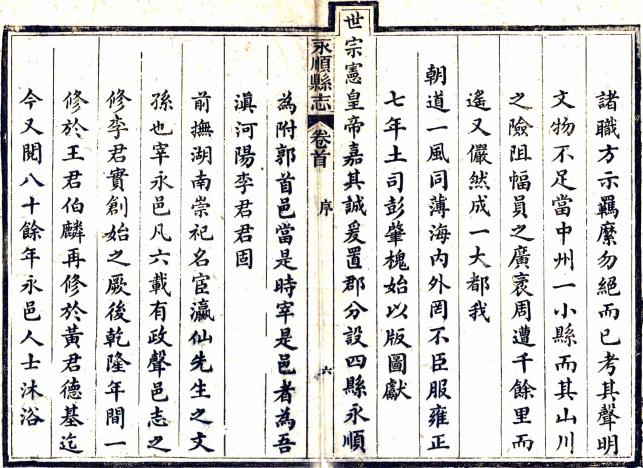 諸職方示羈縻勿絕而已考其聲明
文物不足當中州一小縣而其山川
之險阻幅員之廣袤周遭千餘里而
遙又儼然成一大都我
朝道一風同薄海內外罔不臣服雍正
七年土司彭肇槐始以版圖獻
世宗憲皇帝嘉其誠爰置郡分設四縣永順
永順縣志
卷首
序
六
為附郭首邑當是時宰是邑者為吾
滇河陽李君君固
前撫湖南崇祀名宦瀛仙先生之文
孫也宰永邑凡六載有政聲邑志之
修李君實創始之厥後乾隆年間一
修於王君伯麟再修於黃君德基迄
今又閱八十餘年永邑人士沐浴